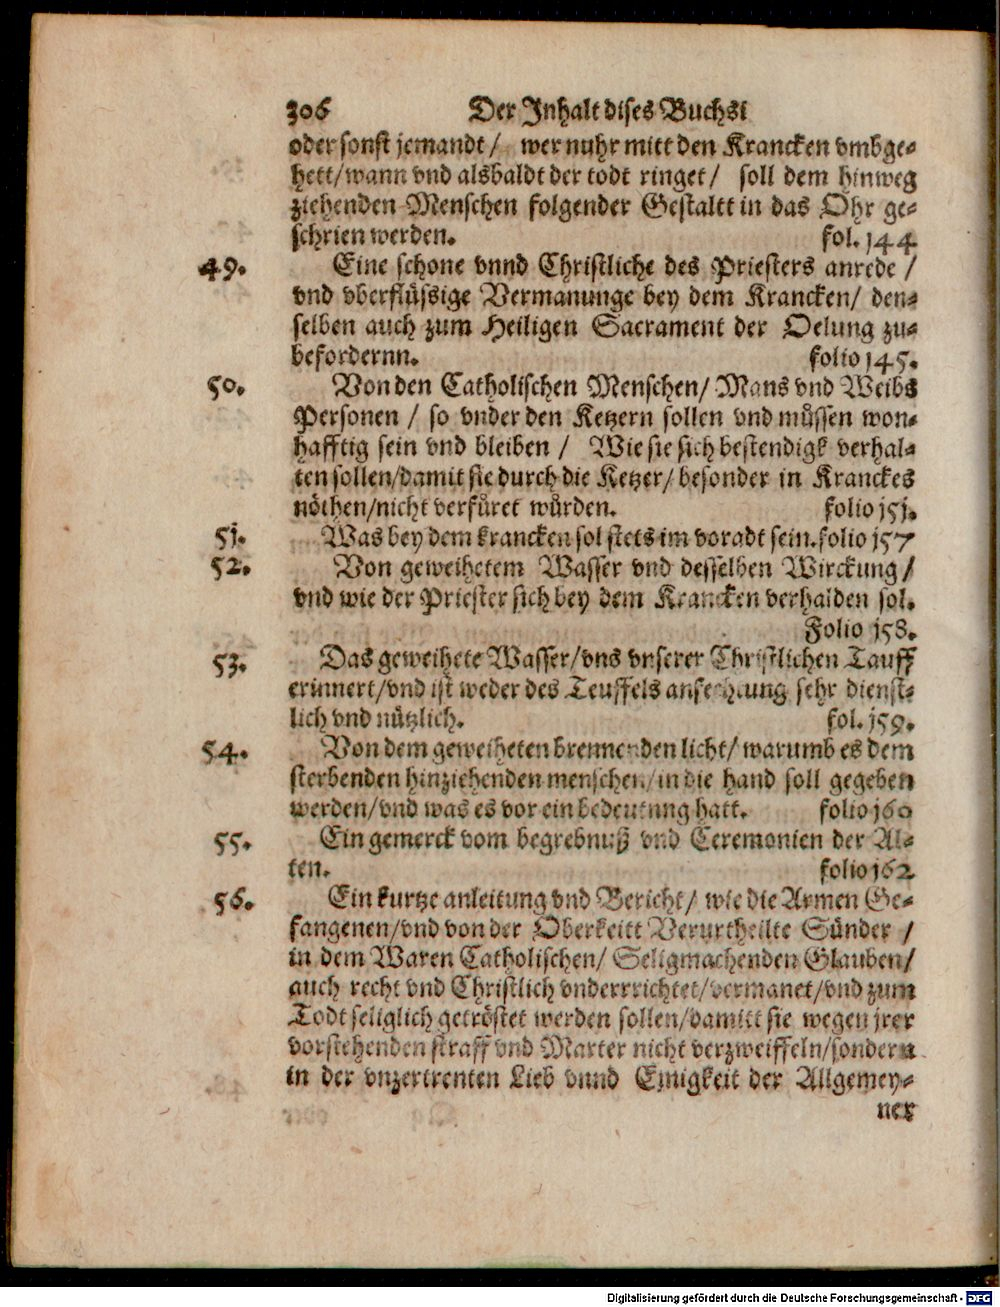 306 Der Inhalt dises Buchsi
oder sonst jemandt / wer nuhr mitt den Krancken vmbge-
hett/wann vnd alsbaldt der todt ringet / soll dem hinweg
ziehenden Menschen folgender Gestaltt in das Ohr ge-
schrien werden. fol. 144
49. Eine schone vnnd Christliche des Priesters anrede /
vnd vberflüssige Vermanunge bey dem Krancken/ den-
selben auch zum Heiligen Sacrament der Oelung zu-
befordernn. folio 145.
50. Von den Catholischen Menschen/ Mans vnd Weibs
Personen / so vnder den Ketzern sollen vnd müssen won-
hafftig sein vnd bleiben / Wie sie sich bestendigk verhal-
ten sollen/damit sie durch die Ketzer/ besonder in Kranckes
nöthen/nicht verfüret würden. folio 151.
51. Was bey dem krancken sol stets im voradt sein. folio 157
52. Von geweihetem Wasser vnd desselben Wirckung/
vnd wie der Priester sich bey dem Krancken verhalden sol.
Folio 158.
53. Das geweihete Wasser/vns vnserer Christlichen Tauff
erinnert/vnd ist weder des Teuffels anfechtung sehr dienst-
lich vnd nützlich. fol. 159.
54. Von dem geweiheten brennenden licht/ warumb es dem
sterbenden hinziehenden menschen/in die hand soll gegeben
werden/vnd was es vor ein bedeutung hatt. folio 160
55. Ein gemerck vom begrebnuß vnd Ceremonien der Al-
ten. folio 162
56. Ein kurtze anleitung vnd Bericht/ wie die Armen Ge-
fangenen/vnd von der Oberkeitt Verurtheilte Sünder /
in dem Waren Catholischen/ Seligmachenden Glauben/
auch recht vnd Christlich vnderrrichtet/vermanet/vnd zum
Todt seliglich getröstet werden sollen/damitt sie wegen jrer
vorstehenden straff vnd Marter nicht verzweiffeln/sondern
in der vnzertrenten Lieb vnnd Einigkeit der Allgemey-
ner
Digitalisierung gefördert durch die Deutsche Forschungsgemeinschaft - DFG